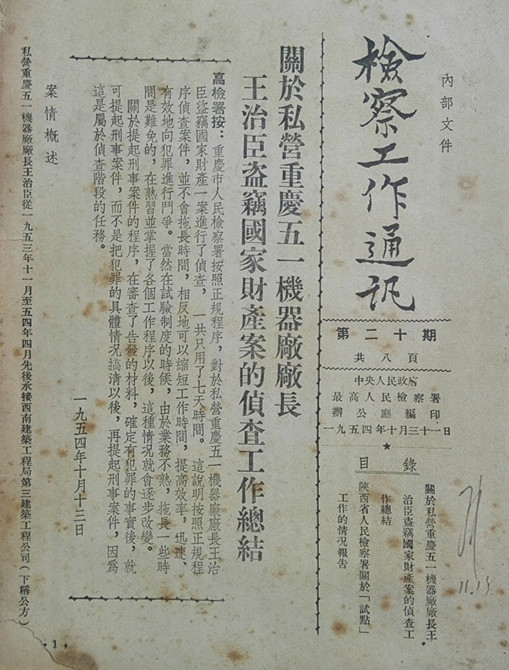 內部文件
檢察工作通訊
第二十期
共八頁
中央人民政府
最高人民檢察署
辦公廳編印
一九五四年十月三十一日
目錄
關於私營重慶五一機器廠廠長王
治臣盗竊國家財產案的偵查工
作總結
陝西省人民檢察署關於「試點」
工作的情况報告
11.15
關於私營重慶五一機器廠廠長
王治臣盗竊國家財產案的偵查工作總結
高檢署按：重慶市人民檢察署按照正規程序，對於私營重慶五一機器廠廠長王治
臣盗竊國家財產一案進行了偵查，一共只用了七天時間。這說明按照正規程
序偵查案件，並不會拖長時間，相反地可以縮短工作時間，提高效率，迅速
有效地向犯罪進行鬥爭。當然在試驗制度的時候，由於業務不熟，拖長一些時
間是難免的，在熟習並掌握了各個工作程序以後，這種情况就會逐步改變。
關於提起刑事案件的程序，在審查了告發的材料，確定有犯罪的事實後，就
可提起刑事案件，而不是把犯罪的具體情况搞清以後，再提起刑事案件，因爲
這是屬於偵查階段的任務。
一九五四年十月十三日
案情概述
私營重慶五一機器廠廠長王治臣從一九五三年十一月至五四年四月先後承接西南建築工程局第三建築工程公司（下稱公方）
·1·